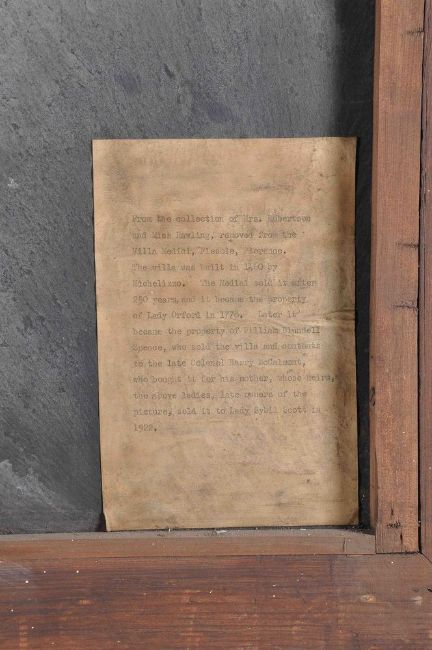 From the collection of Mrs. Robertson
and Miss Rawling, removed from the
Villa Medici, Fiesole, Florence.
The villa was built in 1460 by
Michelizzo. The Medici sold it after
250 years and it became the property
of Lady Orford in 1776. Later it
became the property of William Blundell
Spence, who sold the villa and contents
to the late Colonel Harry McCalmont,
who bought it for his mother, whose heirs,
the above ladies, late owners of the
picture, sold it to Lady Sybil Scott in
1922.